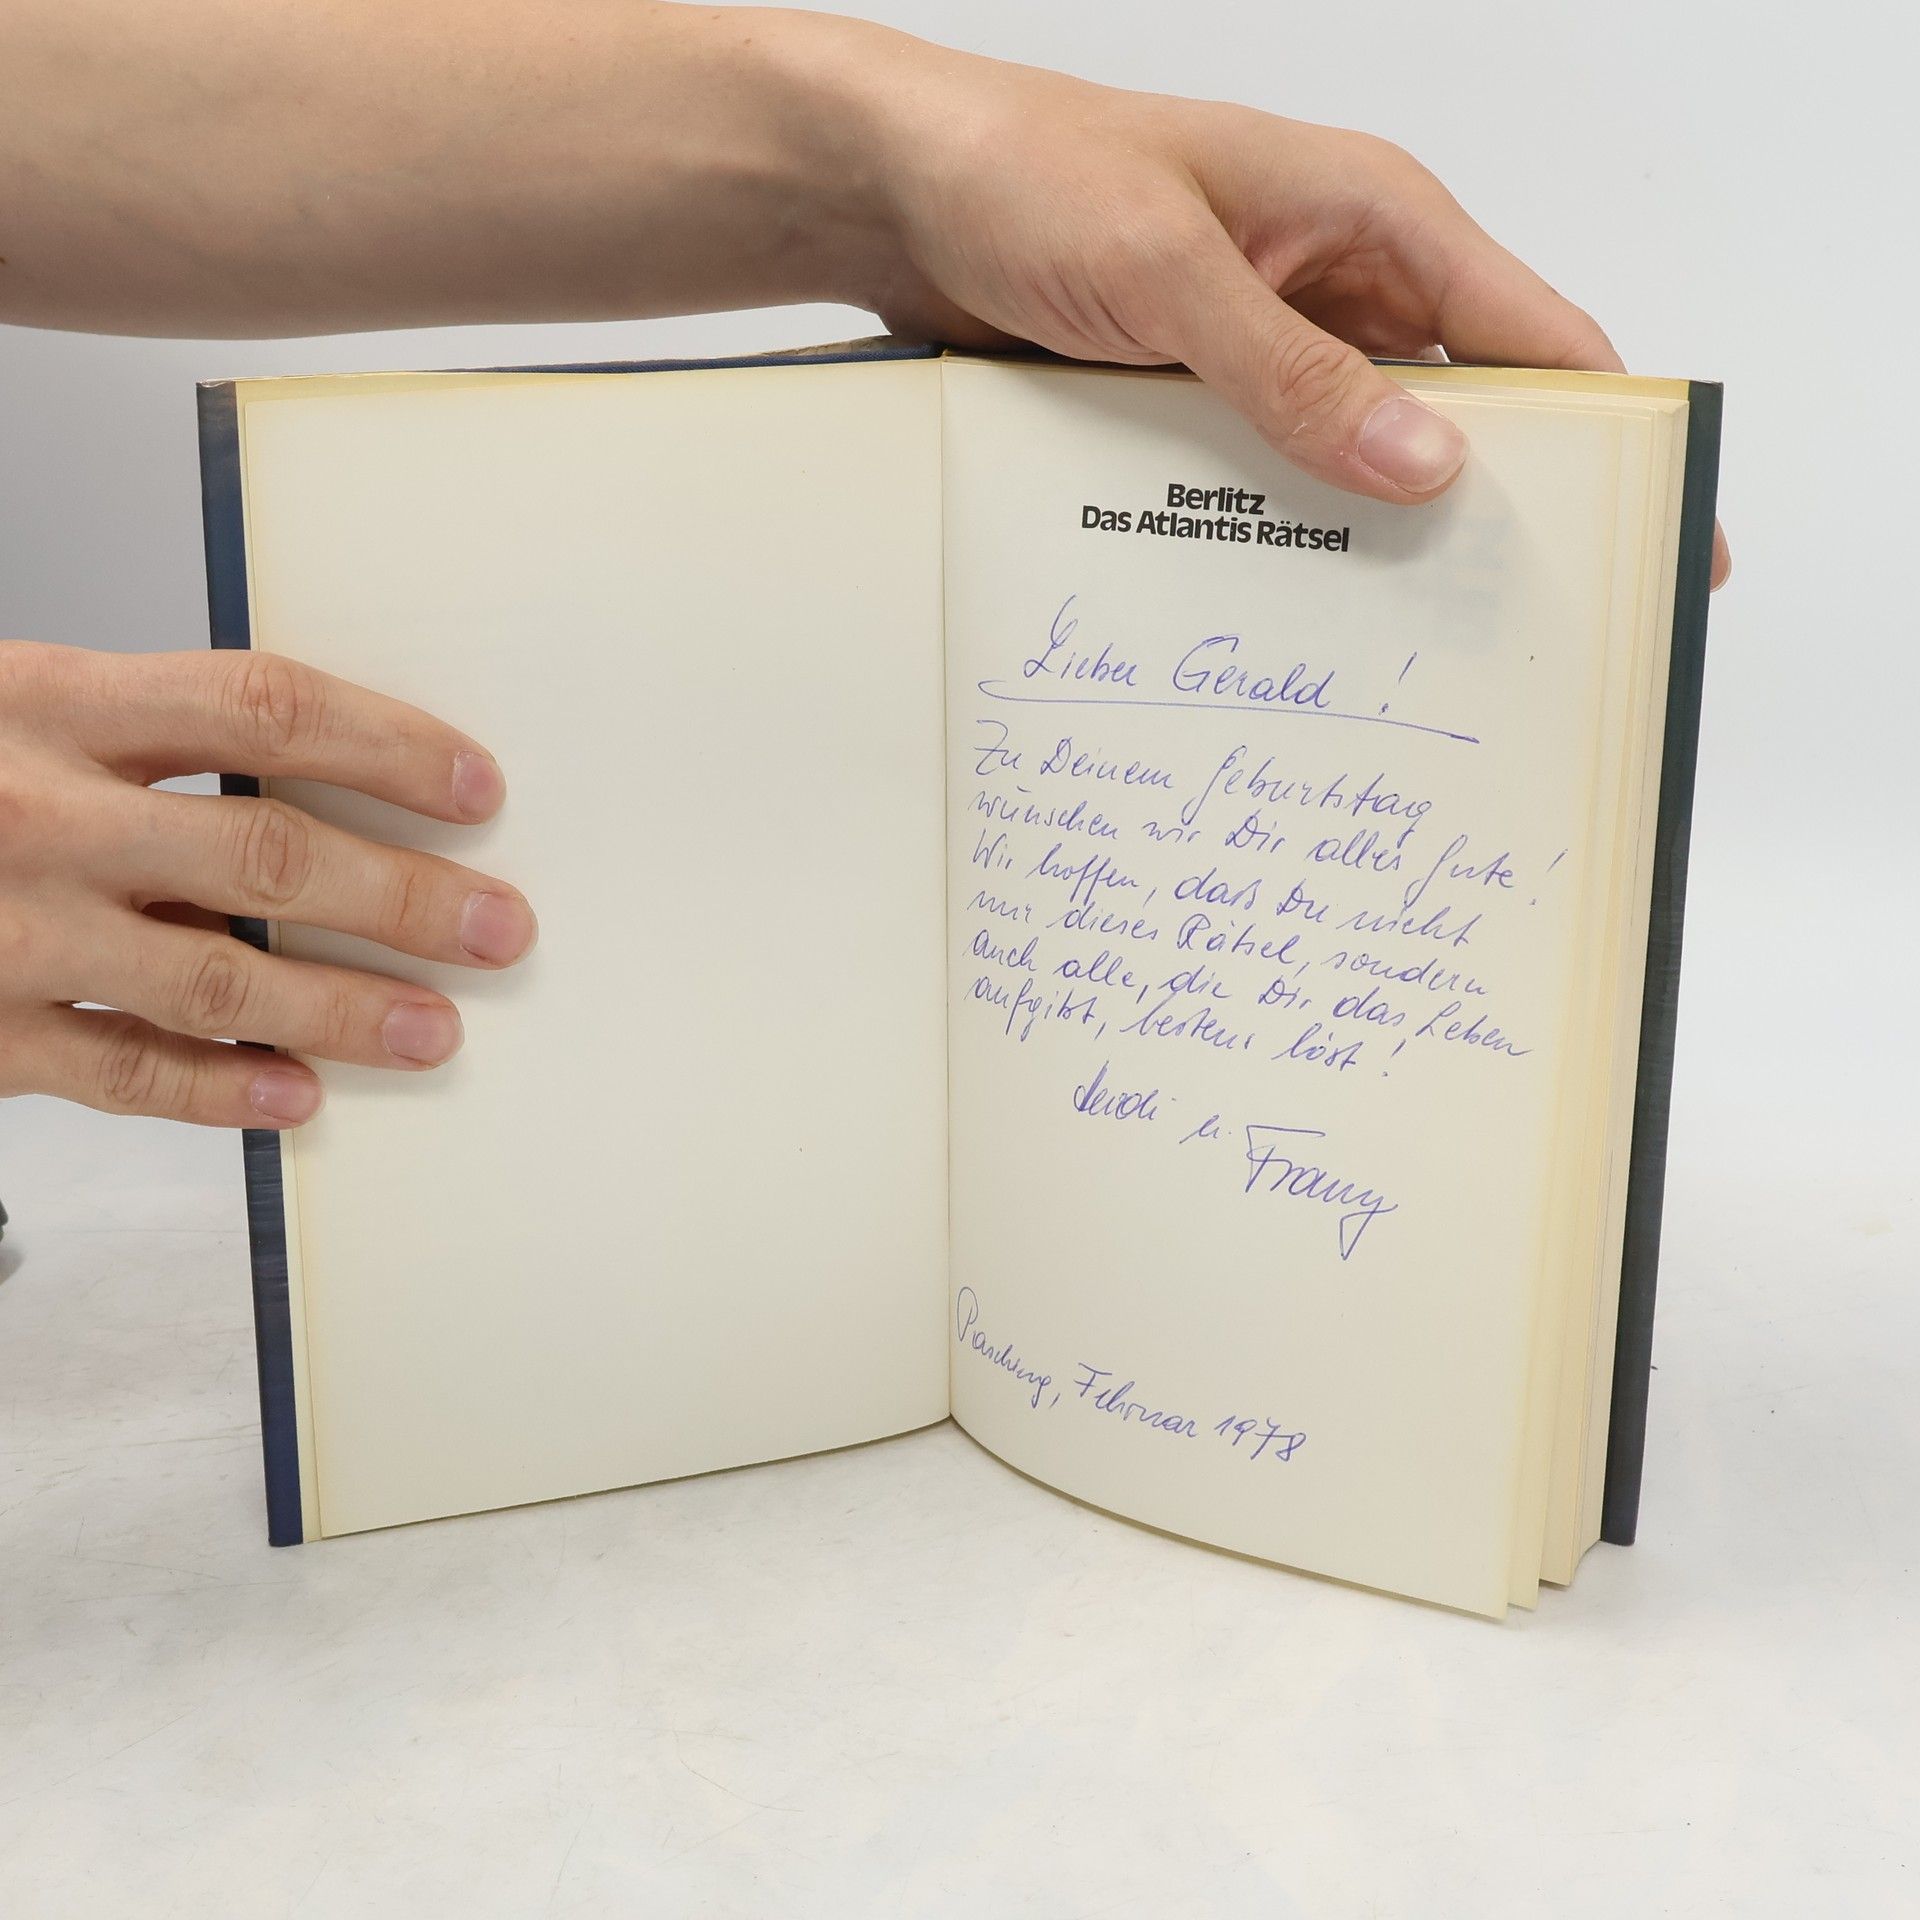 Berlitz
Das Atlantis Rätsel
Lieber Gerald !
Zu Deinem Geburtstag
wünschen wir Dir alles Gute !
Wir hoffen, daß Du nicht
nur dieses Rätsel, sondern
auch alle, die Dir das Leben
aufgibt, bestens löst !
u.
Pasching, Februar 1978